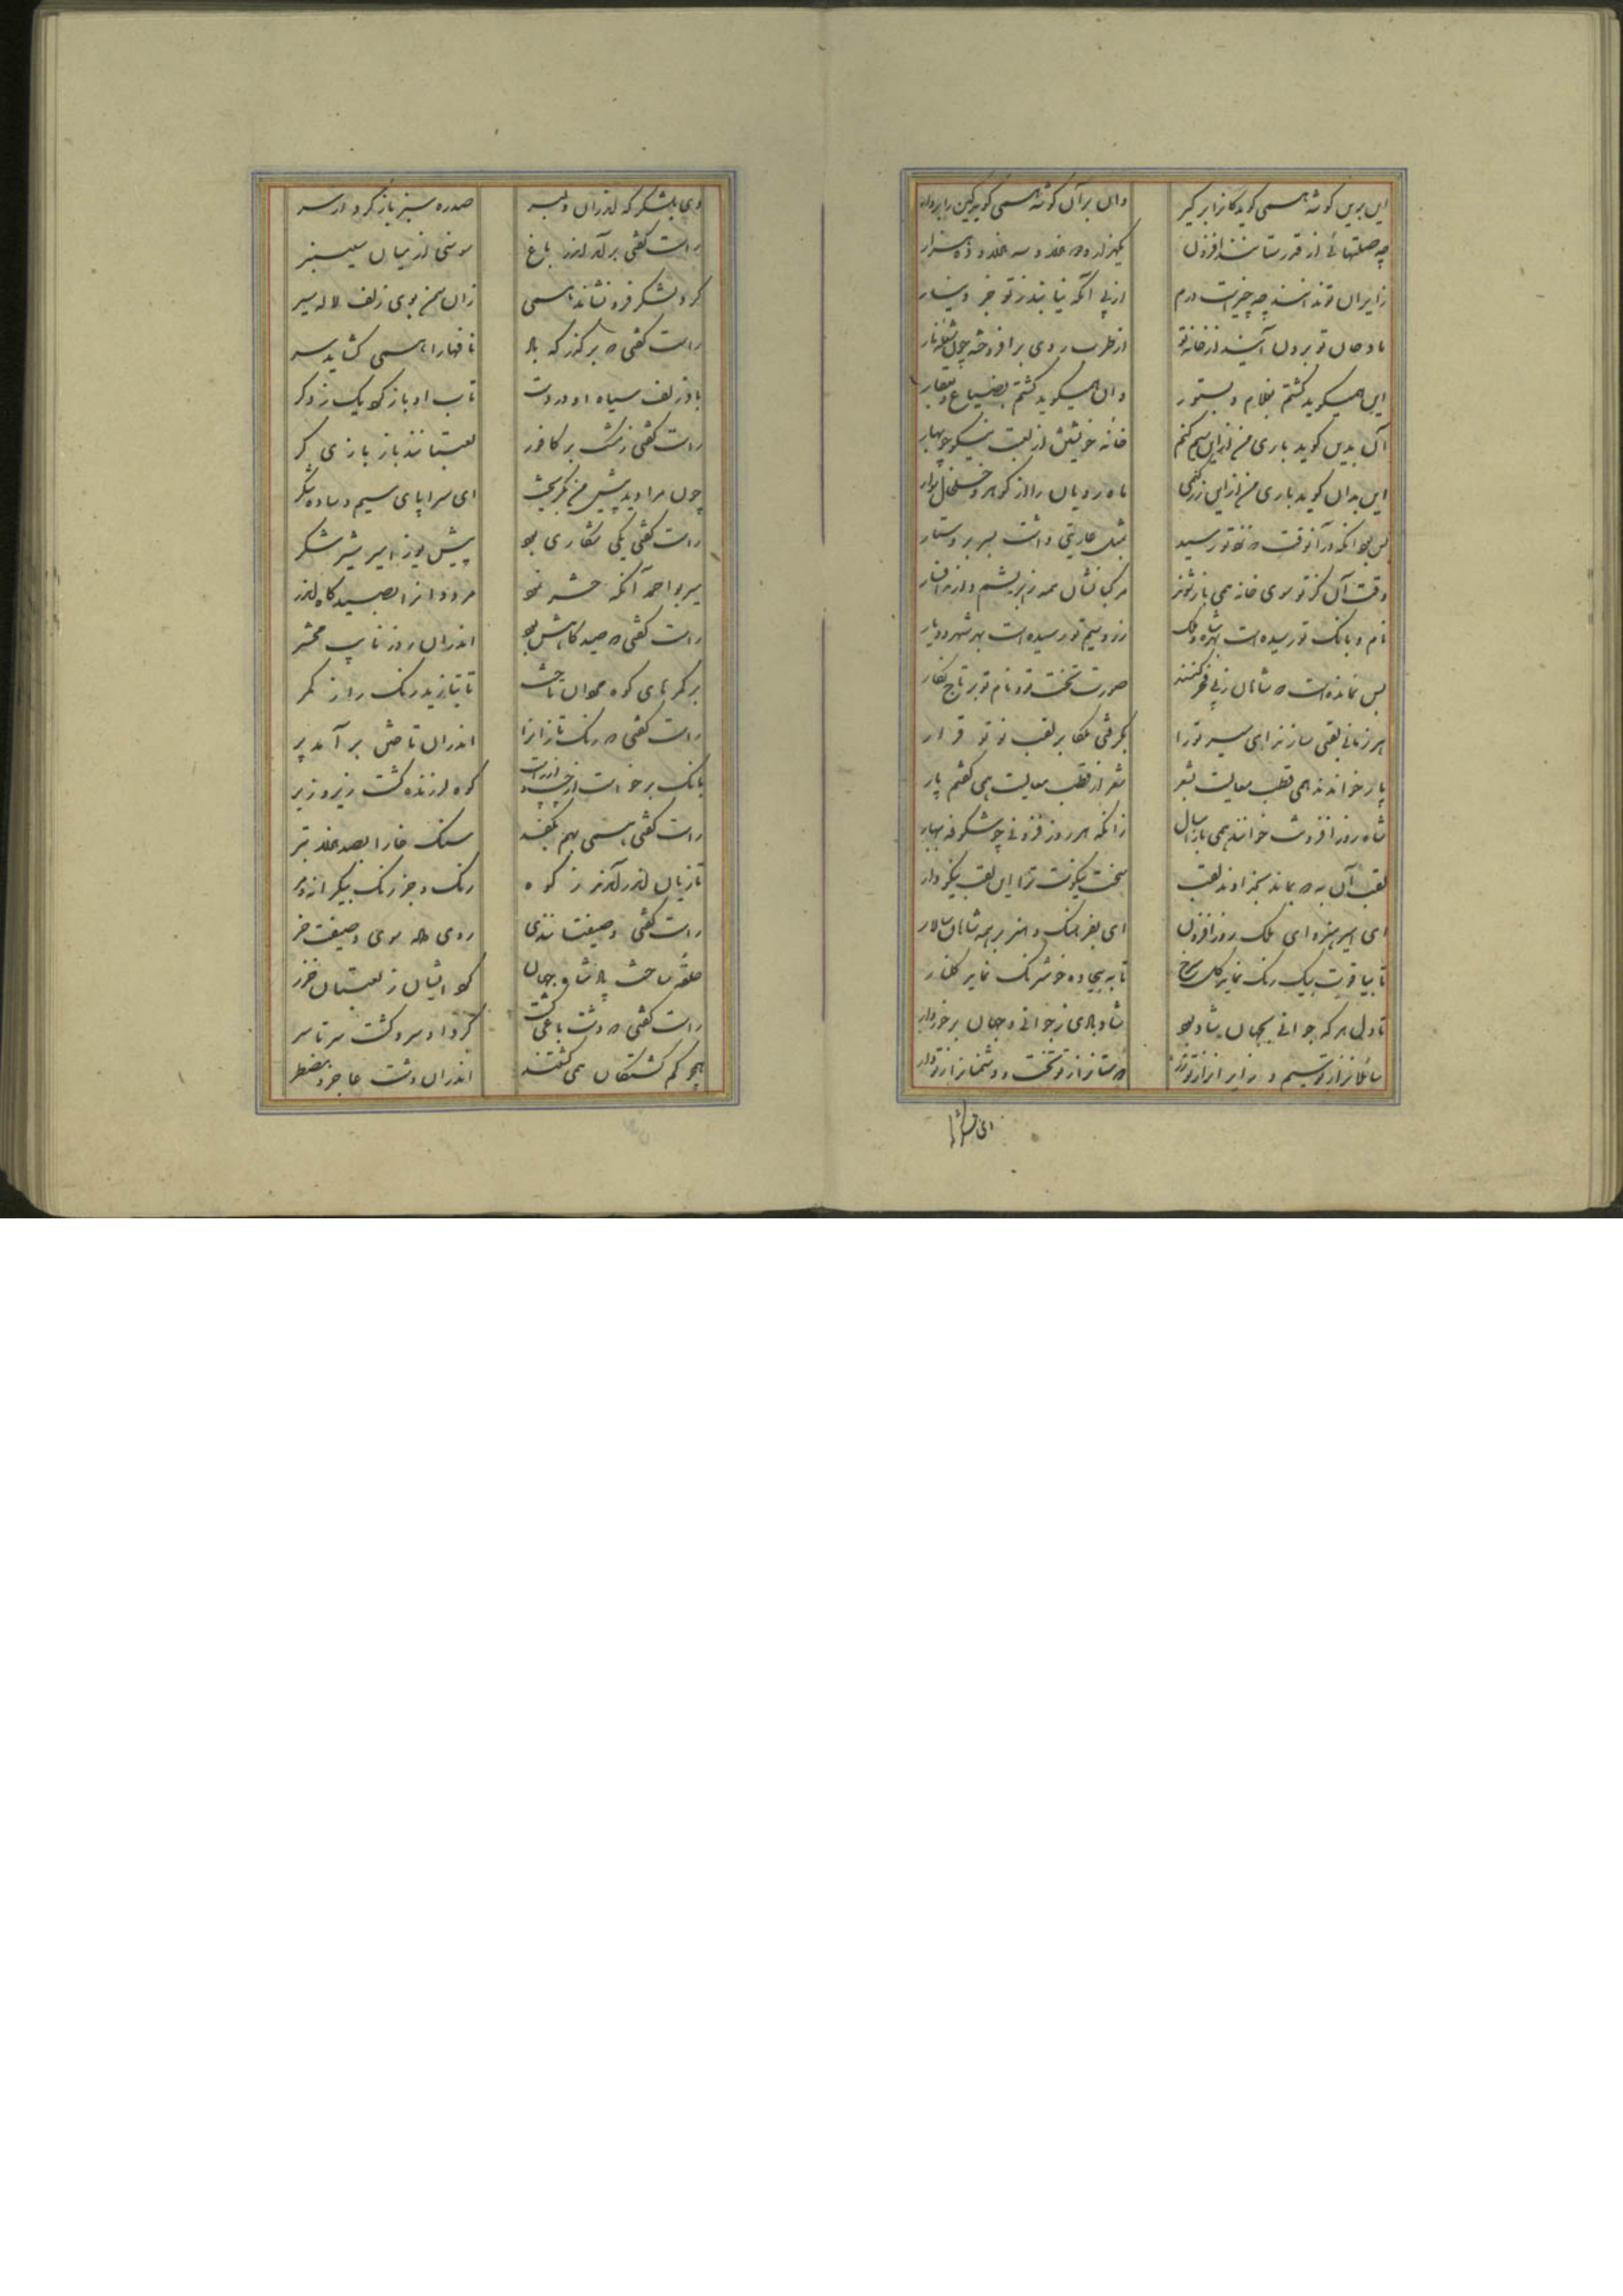 این بدین گوشه همی گوید کانرا بر گیر وان بر آن گوشه همی گوید کین را بردار
چه صلتهائی از قدر ستانند افزون
زایران تو ندانند چه چیزست درم از پی آنکه نیابند ز تو جز دینار
مادحان تو برون آیند از خانه تو از طرب روی برافروخته چون شعله نار
این همیگوید گشتم بغلام و بستور وان همیگوید گشتم بضیاع و بعقار
آن بدین گوید باری من ازین سیم کنم خانه خویش از لعبت نیکو چو بهار
این بدان گوید باری من از این زر کنمی ماه رویان را از گوهر و خلخال سوار
بس بود آنکه در آنوقت که نزد تو رسید شب عاریتی داشت بسر بر دستار
وقت آن کز تو سوی خانه همی باز شود مرکبانشان همه ز ابریشم و از زر افسار
نام و بانک تو رسیده است بهر شاه و ملک زر و سیم تو رسیده است بهر شهر و دیار
بس نمانده است که شاهان ز پی فخر کنند صورت تخت تو و نام تو بر تاج نگار
هر زمانی لقبی سازند ای میر تو را بگرفتی ملکا بر لقب نو تو قرار
پار خواندند همی قطب معالیت بشعر شعر از قطب معالیت همی گفتم پار
شاه روز افزونت خوانند همی باز امسال زانکه هر روز فزونی چو شکوفه ببهار
لقب آن به که بماند بخداوند لقب سخت نیکوست ترا این لقب نیکو دار
ای امیر هنر و ای ملک روز افزون ای بفرهنگ و هنر بر همه شاهان سالار
تا بیاقوت بیک رنگ نماید گل سرخ تا ببیجاده خوشرنگ نماید گلنار
تا دل هر که جوانی بجهان شاد بود شاد باد ی ز جوانی و جهان برخوردار
سائلانرا ز تو سیم و زایرانرا ز تو زر دوستانرا ز تو تخت و دشمنانرا ز تو دار
دی بلشکر که اندران دلبر صدره سبز باز کرد از سر
راست گفتی بر آمد اندر باغ سوسنی از میان سیسنبر
گرد لشکر فرو نشاند همی زان سمن بوی زلف لاله سپر
راست گفتی که بر گذرگه باد نافها را همی گشاید سر
باد زلف سیاه او در دست تاب او باز کرد یک ز دگر
راست گفتی زمشک بر کافور لعبتانند باز بازی گر
چون مرا دید پیش من بگریخت ای سراپای سیم و ساده شکر
راست گفتی یکی شکاری بود پیش یوز امیر شیر شکر
میر بو احمد آنکه حشر نمود مر ددانرا بصیدگاه اندر
راست گفتی که صیدگاهش بود اندران روز نایب محشر
بر کمرهای کوه مردان تاخت تا بتازید رنگ را ز کمر
راست گفتی که رنگ تازانرا اندران تاختن بر آمد پر
بانگ برخواست کوه لرزنده گشت زیر و زبر
راست گفتی همی بهم شکنند سنگ خارا بصد هزار تبر
تازیان اندر آمدند ز کوه رنگ و جز رنگ بیکرانه و مر
راست گفتی وصیفتانندی روی داده سوی وصیفت خر
حلقه ساخت پادشاه جهان گرد ایشان ز لعبتان خزر
راست گفتی که دشت باغی گشت گرد او سرو گشت سرتاسر
همچو گم گشتگان همی گشتند اندران دشت عاجز و مضطر